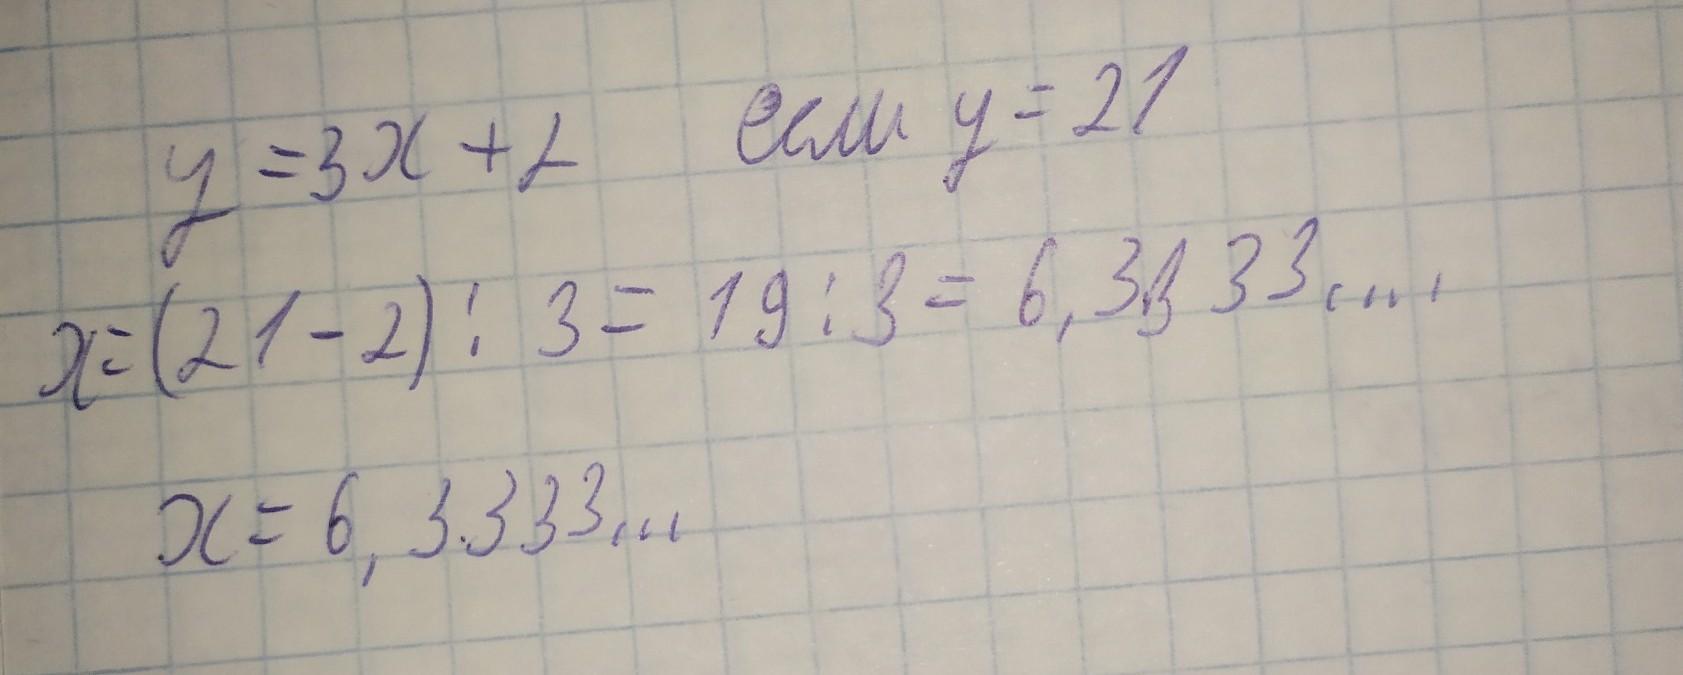 y = 3x + 2 если y = 21
x = (21 - 2) : 3 = 19 : 3 = 6,3333....
x = 6,3333...